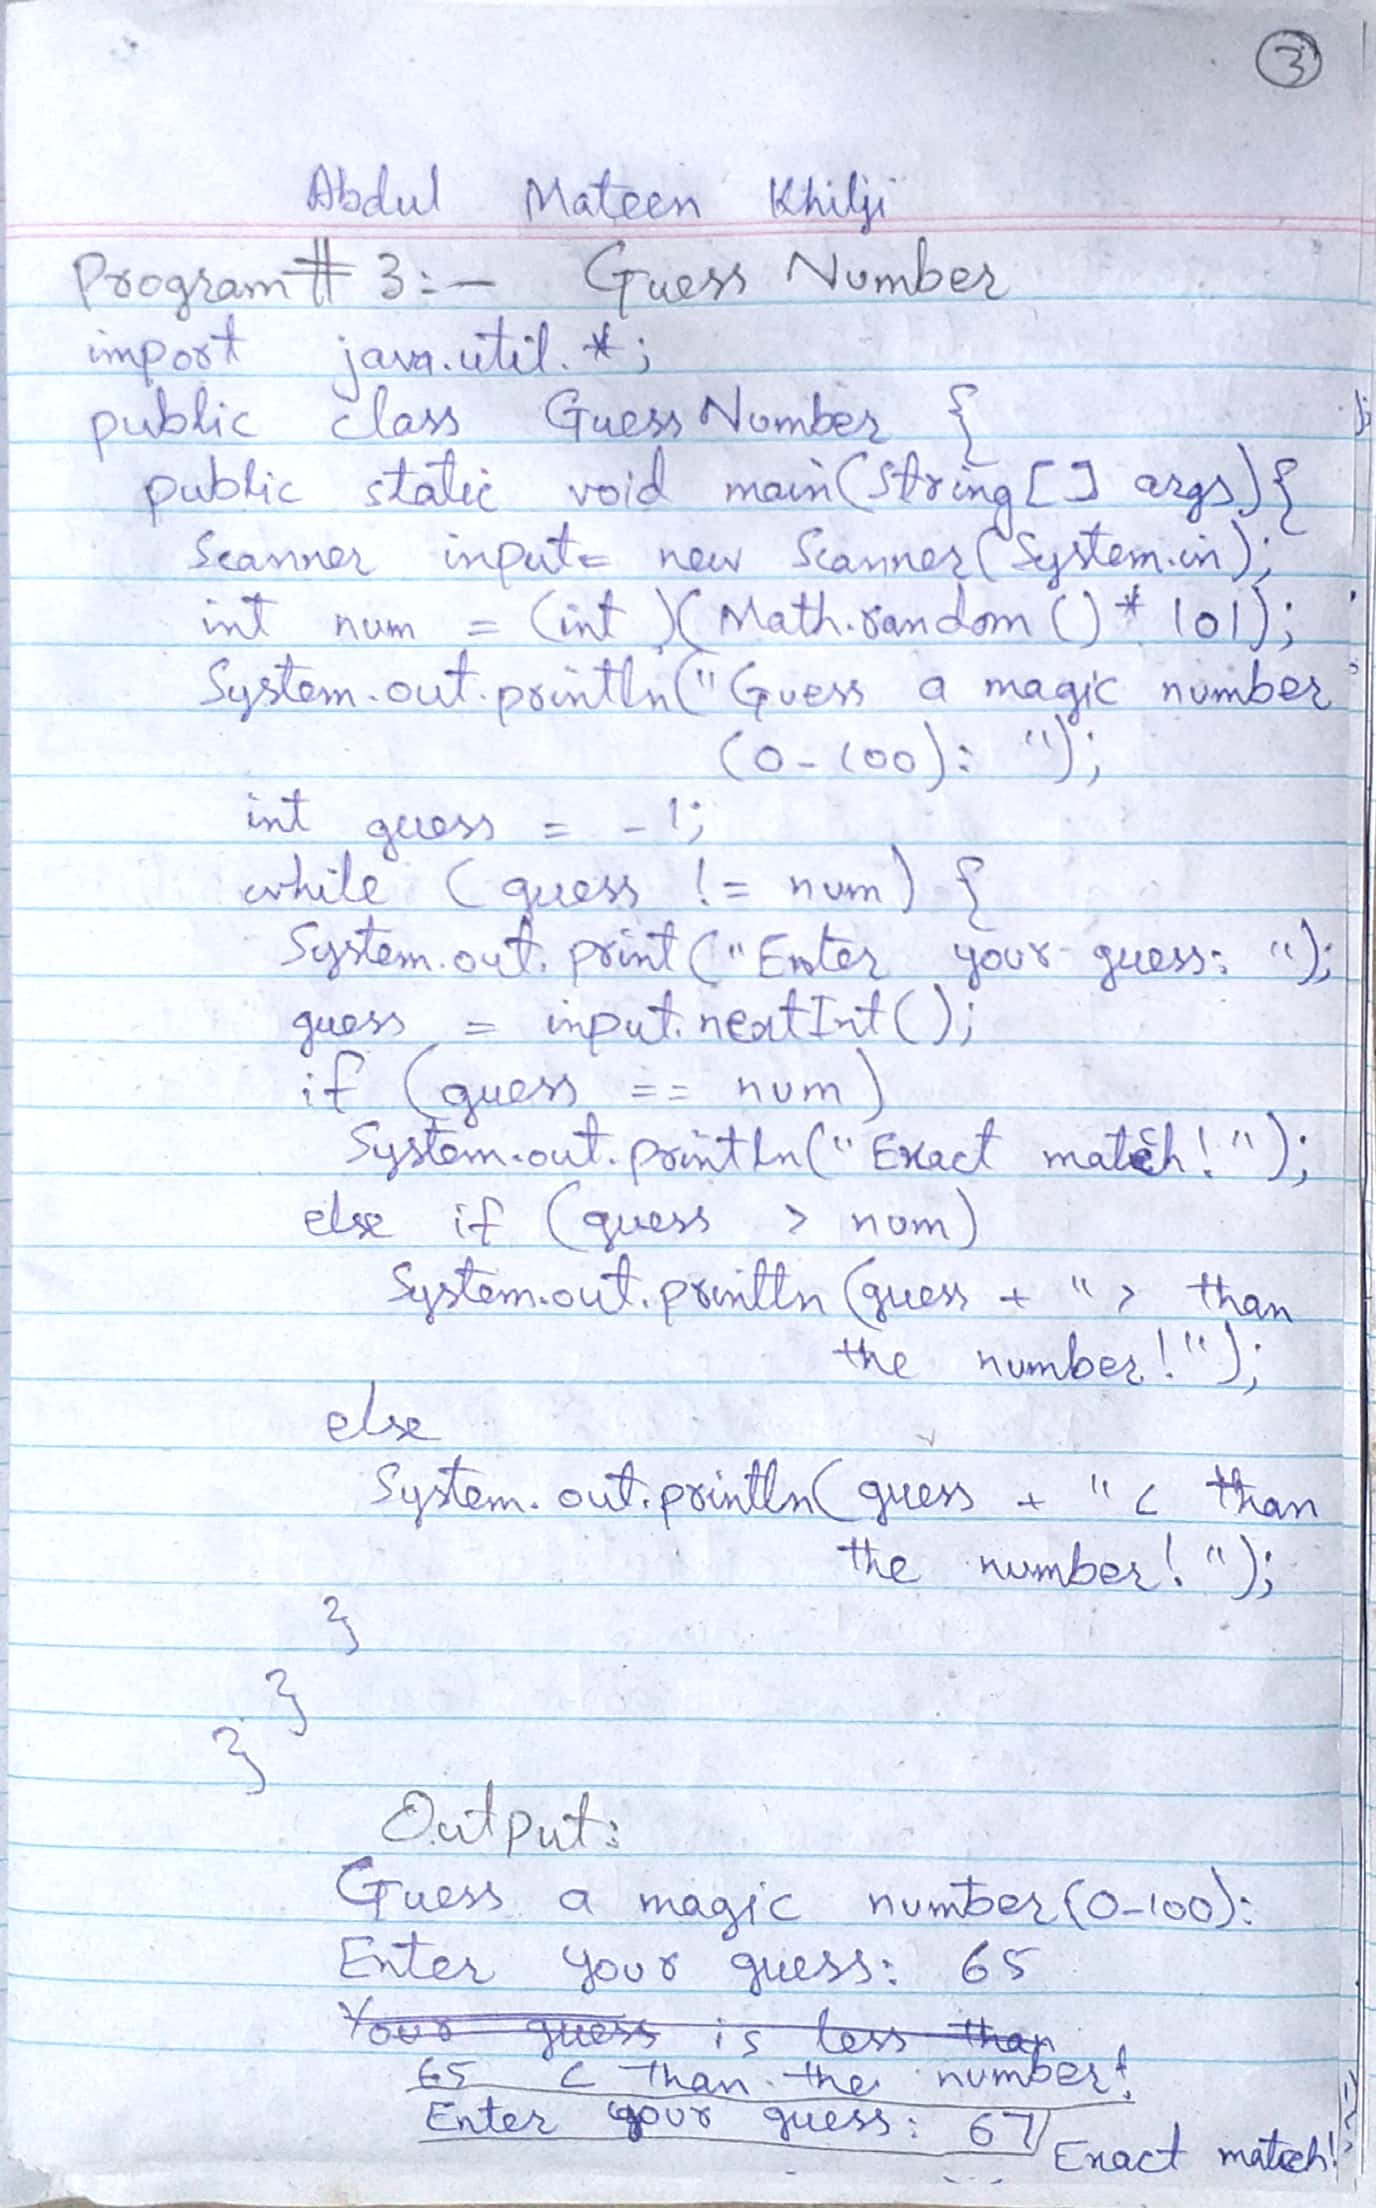 3
Abdul Mateen Khilji
Program # 3:- Guess Number
import java.util.*;
public class GuessNumber {
public static void main(String[] args){
Scanner input= new Scanner(System.in);
int num = (int)(Math.random()* 101);
System.out.println("Guess a magic number
(0-100): ");
int guess = -1;
while (guess != num) {
System.out.print("Enter your guess: ");
guess = input.nextInt();
if (guess == num)
System.out.println("Exact match!");
else if (guess > num)
System.out.println(guess + " > than
the number!");
else
System.out.println(guess + " < than
the number!");
}
}
}
Output:
Guess a magic number(0-100):
Enter your guess: 65
Your guess is less than
65 < than the number!
Enter your guess: 67 Exact match!